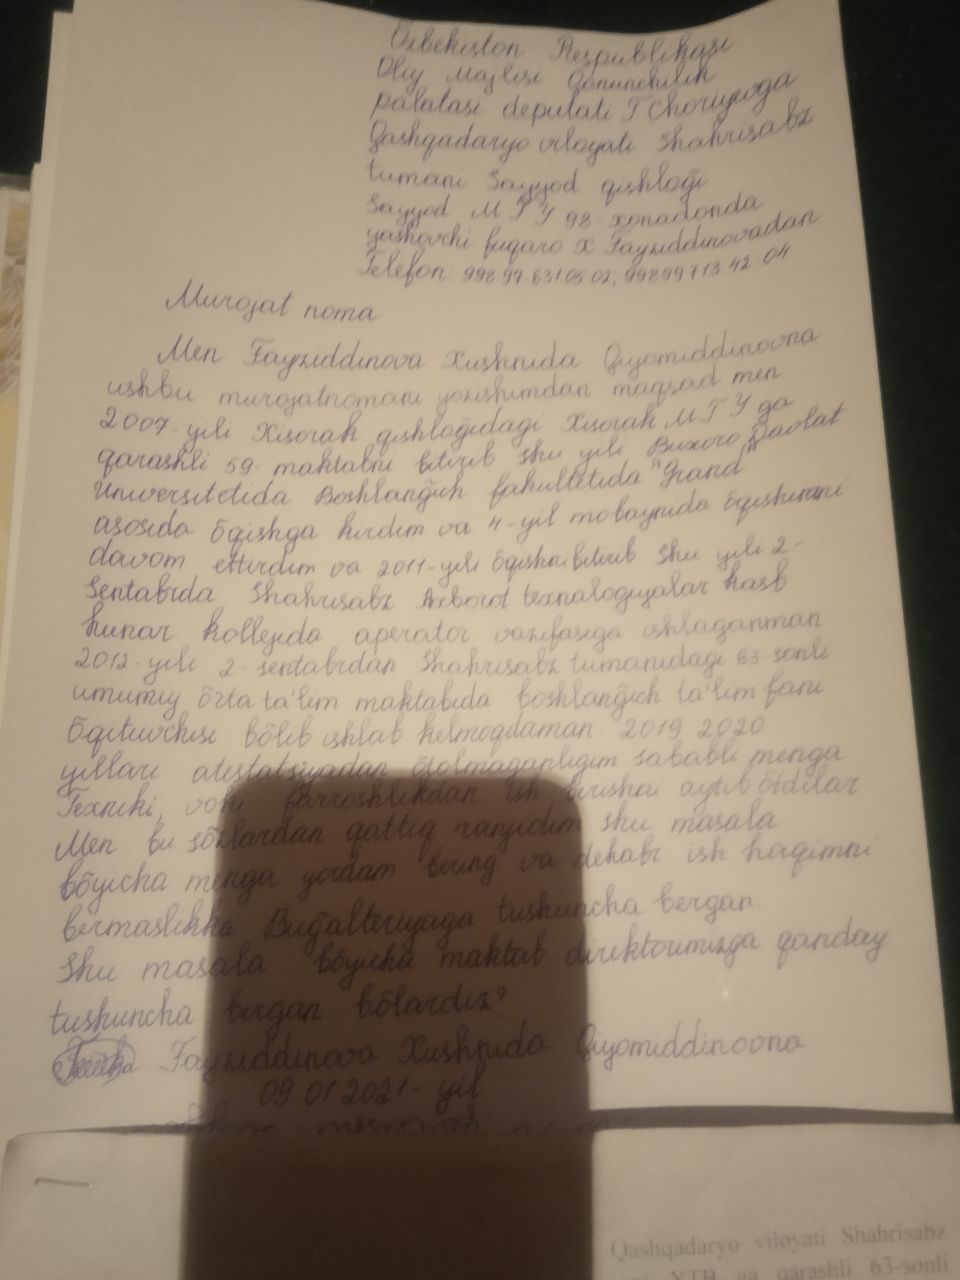 Õzbekiston Respublikasi
Oliy Majlisi Qonunchilik
palatasi deputati T Choriyevga
Qashqadaryo viloyati Shahrisabz
tumani Sayyod qishlog̃i
Sayyod M F Y 98 xonadonda
yashovchi fuqaro X Fayziddinovadan
Telefon 998 97 631 05 02, 998 99 713 42 04
Murojat noma
Men Fayziddinova Xushnida Qiyomiddinovna
ushbu murojatnomani yozishimdan maqsad men
2007-yili Xisorak qishlog̃idagi Xisorak M F Y ga
qarashli 59 maktabni bitirib shu yili Buxoro Davlat
Universitetida Boshlang̃ich fakultetida "Grand"
asosida õqishga kirdim va 4-yil mobaynida õqishimni
davom ettirdim va 2011-yili õqishni bitirib shu yili 2-
Sentabrda Shahrisabz Axborot texnalogiyalar kasb
hunar kollejida aperator vazifasiga ishlaganman
2012-yili 2-sentabrdan Shahrisabz tumanidagi 63-sonli
umumiy õrta ta'lim maktabida boshlang̃ich ta'lim fani
õqituvchisi bõlib ishlab kelmoqdaman. 2019 2020
yillari atestatsiyadan õtolmaganligim sababli menga
Texnichi, yoki farroshlikdan ish berishni aytib õtdilar
Men bu sõzlardan qattiq ranjidim shu masala
bõyicha menga yordam bering va dekabr ish haqimni
bermaslikka Bug̃alteriyaga tushuncha bergan.
Shu masala bõyicha maktab direktorimizga qanday
tushuncha bergan bõlardiz?
Fayziddinova Xushnida Qiyomiddinovna
09 01 2021-yil
Qashqadaryo viloyati Shahrisabz
XTB ga qarashli 63-sonli